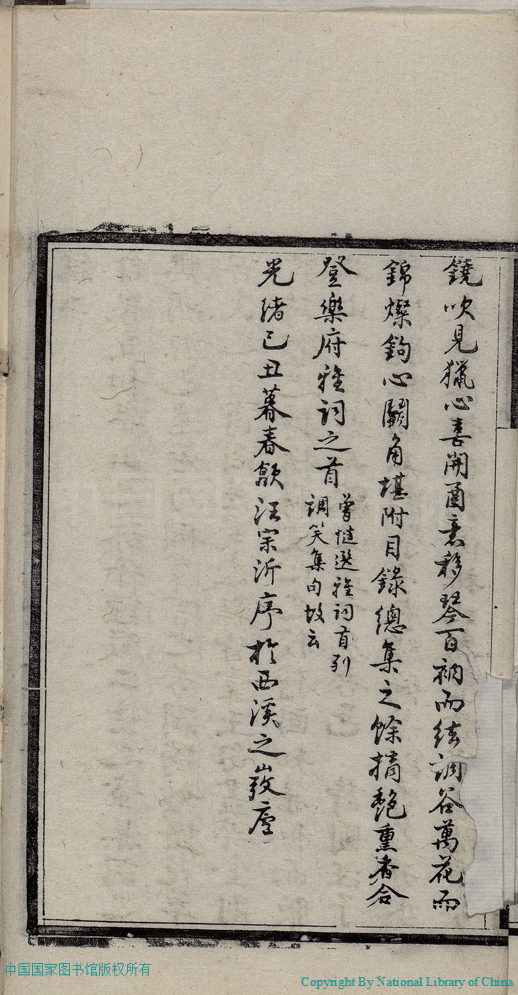 鐃吹見獵心喜開函意移琴百衲而絃調谷萬花而
錦燦鉤心鬬角堪附目錄總集之餘摘艷熏香合
登樂府雅詞之首曾慥選雅詞首列
調笑集句故云
光緒己丑暮春歙汪宗沂序於西溪之廬
中国国家图书馆版权所有
Copyright By National Library of China